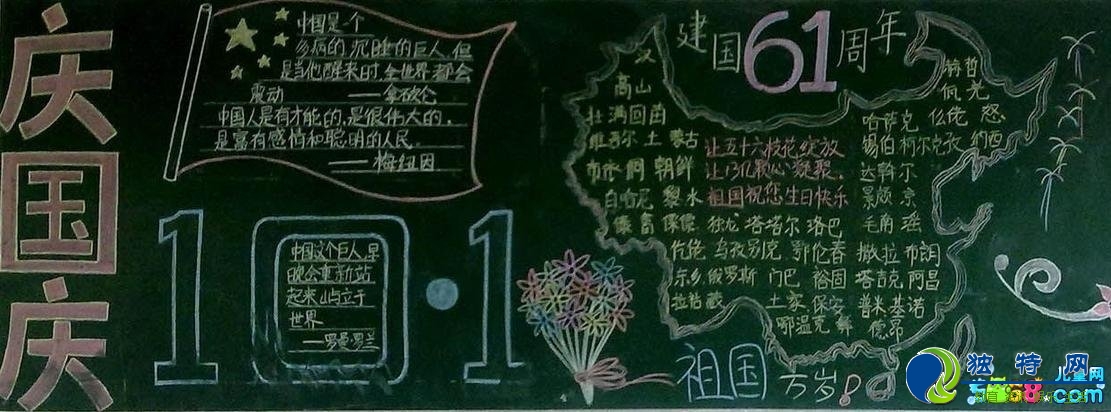 庆
国
庆
中国是一个
多病的,沉睡的巨人,但
是当他醒来时,全世界都会
震动 ——拿破仑
中国人是有才能的,是很伟大的,
是富有感情和聪明的人民。
——梅纽因
10·1
中国这个巨人,早
晚会重新站
起来,屿立于
世界
——罗曼罗兰
建国61周年
汉
高山
壮 满 回 苗
维吾尔 土 蒙古
布依 侗 朝鲜
白 哈尼 黎 水
傣 畲 傈僳
仡佬 乌孜别克 鄂伦春 撒拉 布朗
东乡 俄罗斯 门巴 裕固 塔吉克 阿昌
拉祜 藏 土家 保安 普米 基诺
鄂温克 彝 德昂
让五十六枝花绽放
让13亿颗心凝聚,
祖国祝您生日快乐
独龙 塔塔尔 珞巴
赫哲
佤 羌
哈萨克 仫佬 怒
锡伯 柯尔克孜 纳西
达斡尔
景颇 京
毛南 瑶
祖国万岁!
独特网
儿童网
.com